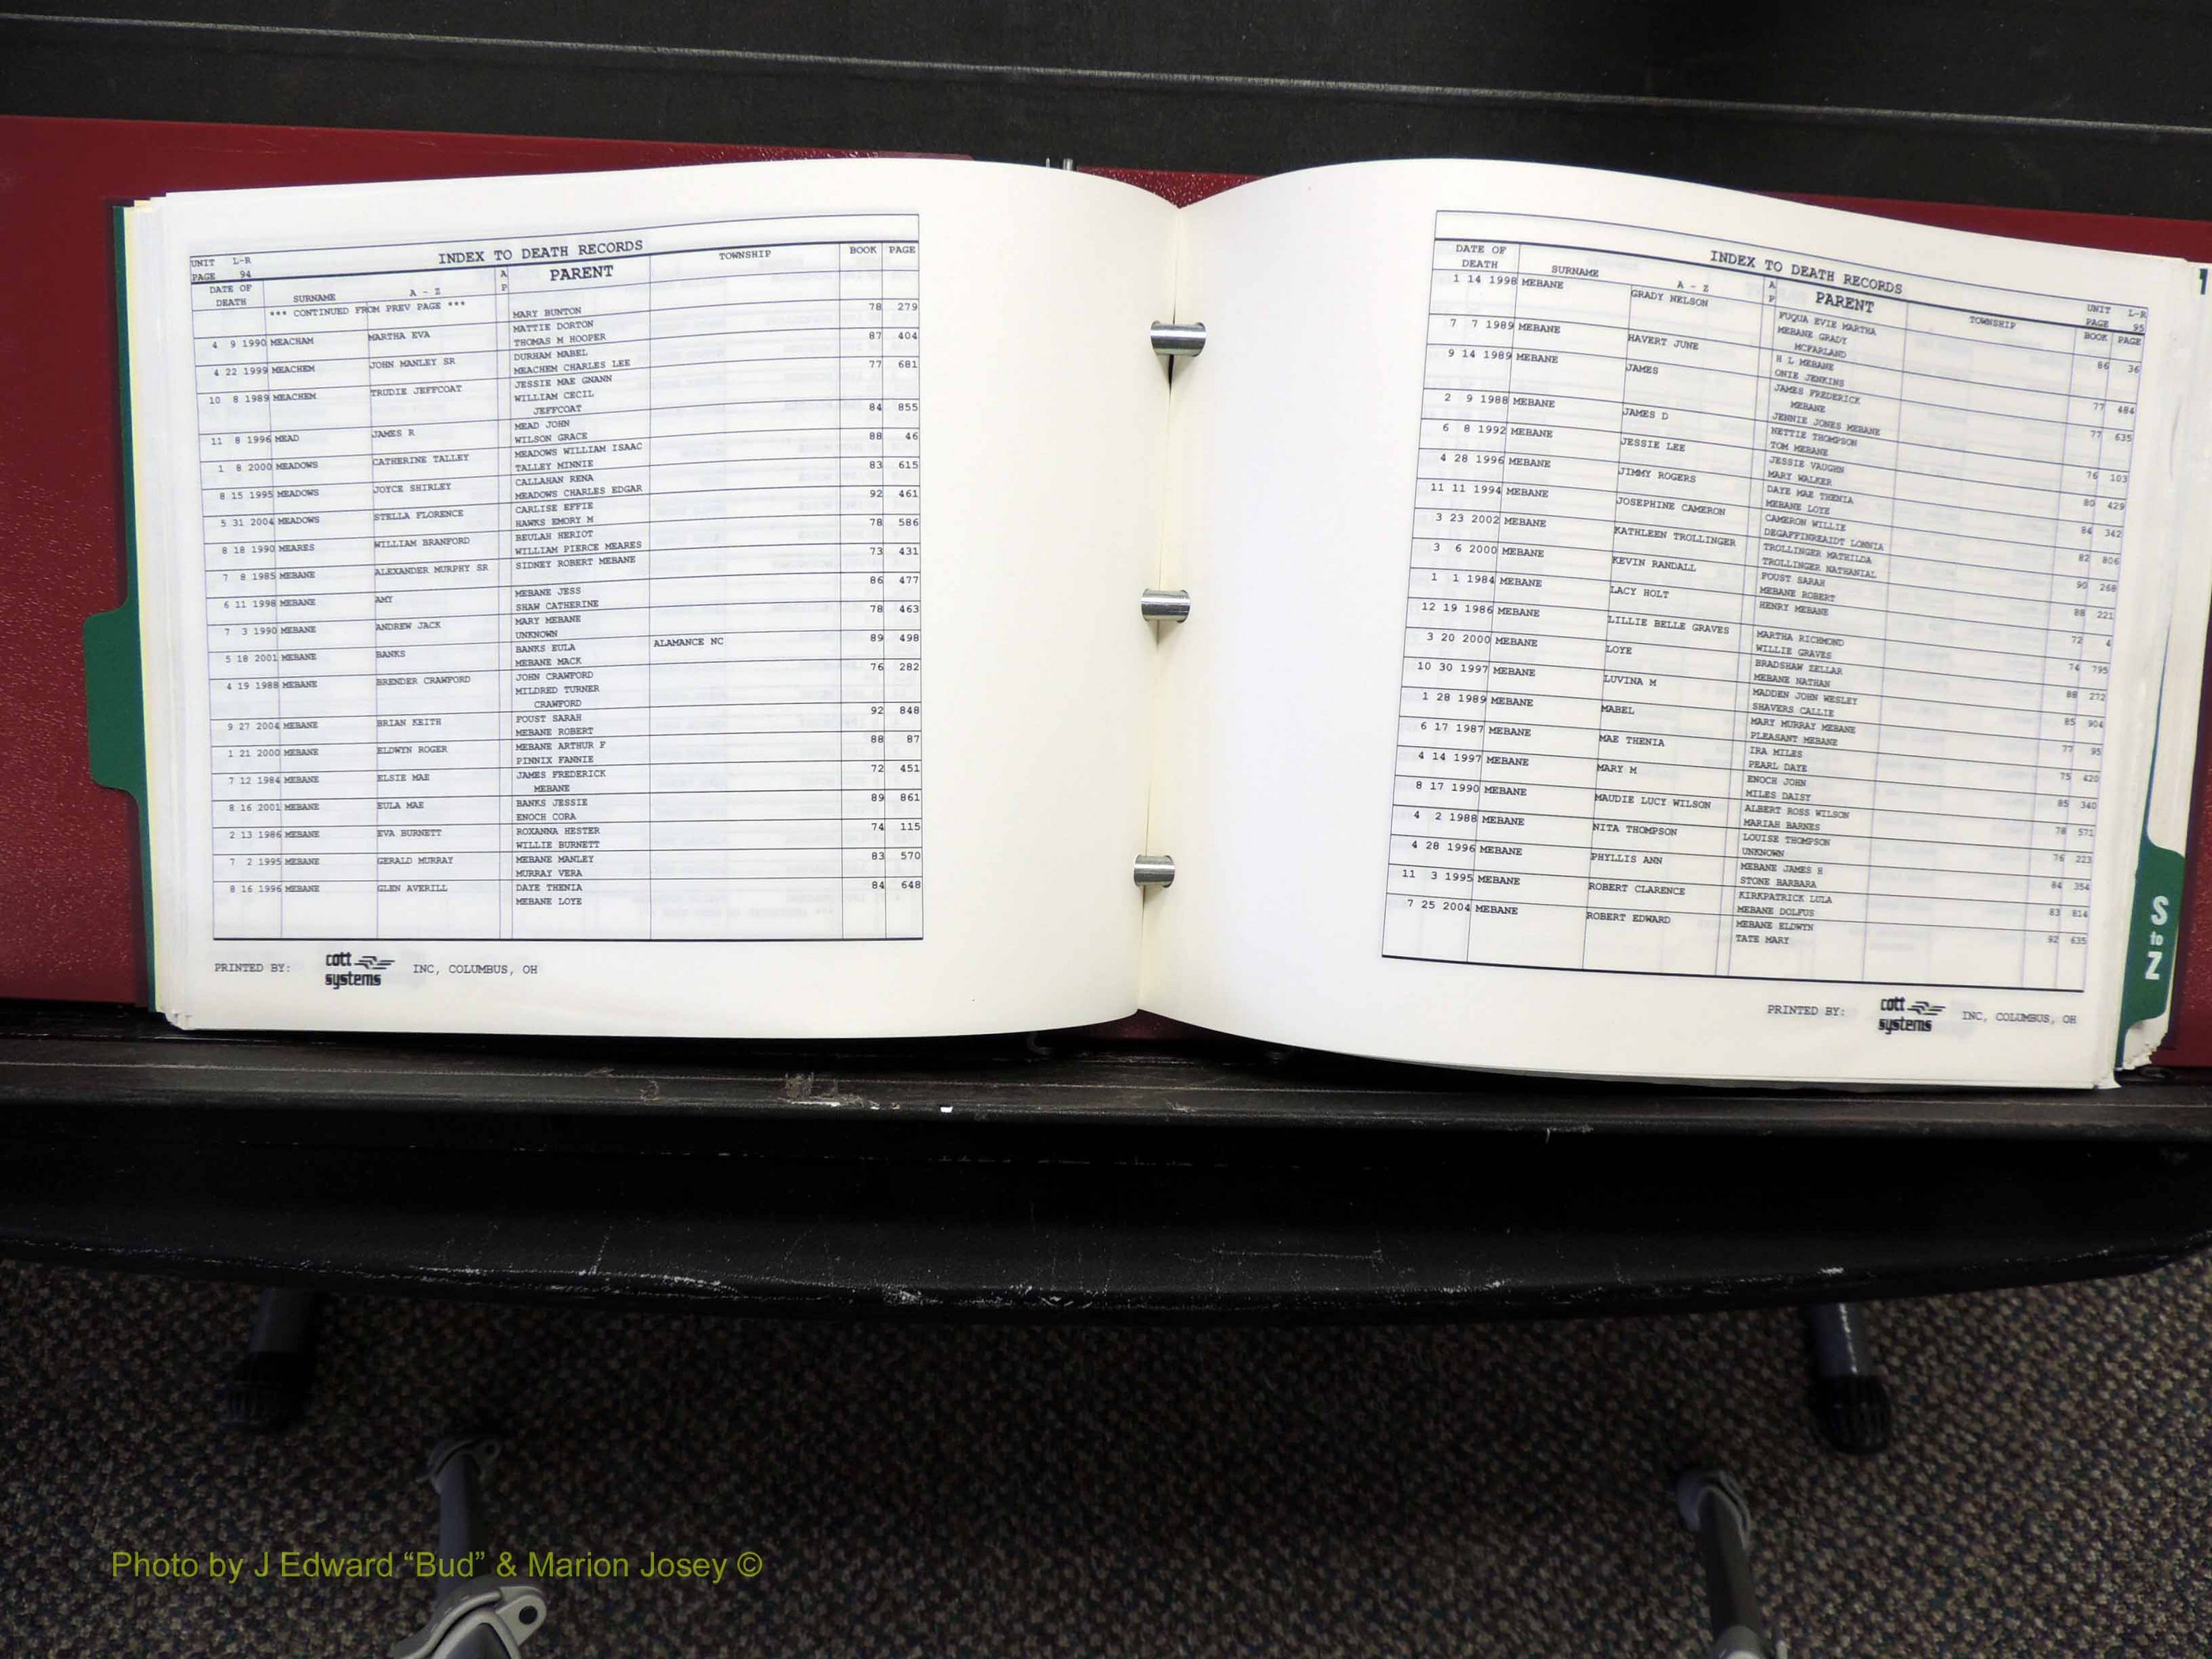 INDEX TO DEATH RECORDS
UNIT L-R
PAGE 94
DATE OF DEATH SURNAME A - Z A P PARENT TOWNSHIP BOOK PAGE
*** CONTINUED FROM PREV PAGE ***
MARY BUNTON
4 9 1990 MEACHAM MARTHA EVA MATTIE DORTON 78 279
THOMAS M HOOPER
4 22 1999 MEACHEM JOHN MANLEY SR DURHAM MABEL 87 404
MEACHEM CHARLES LEE
10 8 1989 MEACHEM TRUDIE JEFFCOAT JESSIE MAE GNANN 77 681
WILLIAM CECIL
JEFFCOAT
11 8 1996 MEAD JAMES R MEAD JOHN 84 855
WILSON GRACE
1 8 2000 MEADOWS CATHERINE TALLEY MEADOWS WILLIAM ISAAC 88 46
TALLEY MINNIE
8 15 1995 MEADOWS JOYCE SHIRLEY CALLAHAN RENA 83 615
MEADOWS CHARLES EDGAR
5 31 2004 MEADOWS STELLA FLORENCE CARLISE EFFIE 92 461
HAWKS EMORY M
8 18 1990 MEARES WILLIAM BRANFORD BEULAH HERIOT 78 586
WILLIAM PIERCE MEARES
7 8 1985 MEBANE ALEXANDER MURPHY SR SIDNEY ROBERT MEBANE 73 431
6 11 1998 MEBANE AMY MEBANE JESS 86 477
SHAW CATHERINE
7 3 1990 MEBANE ANDREW JACK MARY MEBANE 78 463
UNKNOWN
5 18 2001 MEBANE BANKS BANKS EULA ALAMANCE NC 89 498
MEBANE MACK
4 19 1988 MEBANE BRENDER CRAWFORD JOHN CRAWFORD 76 282
MILDRED TURNER
CRAWFORD
9 27 2004 MEBANE BRIAN KEITH FOUST SARAH 92 848
MEBANE ROBERT
1 21 2000 MEBANE ELDWYN ROGER MEBANE ARTHUR F 88 87
PINNIX FANNIE
7 12 1984 MEBANE ELSIE MAE JAMES FREDERICK 72 451
MEBANE
8 16 2001 MEBANE EULA MAE BANKS JESSIE 89 861
ENOCH CORA
2 13 1986 MEBANE EVA BURNETT ROXANNA HESTER 74 115
WILLIE BURNETT
7 2 1995 MEBANE GERALD MURRAY MEBANE MANLEY 83 570
MURRAY VERA
8 16 1996 MEBANE GLEN AVERILL DAYE THENIA 84 648
MEBANE LOYE
PRINTED BY: cott systems INC, COLUMBUS, OH
INDEX TO DEATH RECORDS
UNIT L-R
PAGE 95
DATE OF DEATH SURNAME A - Z A P PARENT TOWNSHIP BOOK PAGE
1 14 1998 MEBANE GRADY NELSON FUQUA EVIE MARTHA 86 36
MEBANE GRADY
MCFARLAND
7 7 1989 MEBANE HAVERT JUNE H L MEBANE 77 484
ONIE JENKINS
9 14 1989 MEBANE JAMES JAMES FREDERICK 77 635
MEBANE
JENNIE JONES MEBANE
2 9 1988 MEBANE JAMES D NETTIE THOMPSON 76 103
TOM MEBANE
6 8 1992 MEBANE JESSIE LEE JESSIE VAUGHN 80 429
MARY WALKER
4 28 1996 MEBANE JIMMY ROGERS DAYE MAE THENIA 84 342
MEBANE LOYE
11 11 1994 MEBANE JOSEPHINE CAMERON CAMERON WILLIE 82 806
DEGAFFINREAIDT LONNIA
3 23 2002 MEBANE KATHLEEN TROLLINGER TROLLINGER MATHILDA 90 268
TROLLINGER NATHANIAL
3 6 2000 MEBANE KEVIN RANDALL FOUST SARAH 88 221
MEBANE ROBERT
1 1 1984 MEBANE LACY HOLT HENRY MEBANE 72 4
12 19 1986 MEBANE LILLIE BELLE GRAVES MARTHA RICHMOND 74 795
WILLIE GRAVES
3 20 2000 MEBANE LOYE BRADSHAW ZELLAR 88 272
MEBANE NATHAN
10 30 1997 MEBANE LUVINA M MADDEN JOHN WESLEY 85 904
SHAVERS CALLIE
1 28 1989 MEBANE MABEL MARY MURRAY MEBANE 77 95
PLEASANT MEBANE
6 17 1987 MEBANE MAE THENIA IRA MILES 75 420
PEARL DAYE
4 14 1997 MEBANE MARY M ENOCH JOHN 85 340
MILES DAISY
8 17 1990 MEBANE MAUDIE LUCY WILSON ALBERT ROSS WILSON 78 571
MARIAH BARNES
4 2 1988 MEBANE NITA THOMPSON LOUISE THOMPSON 76 223
UNKNOWN
4 28 1996 MEBANE PHYLLIS ANN MEBANE JAMES H 84 354
STONE BARBARA
11 3 1995 MEBANE ROBERT CLARENCE KIRKPATRICK LULA 83 814
MEBANE DOLFUS
7 25 2004 MEBANE ROBERT EDWARD MEBANE ELDWYN 92 635
TATE MARY
PRINTED BY: cott systems INC, COLUMBUS, OH
S to Z
1
Photo by J Edward “Bud” & Marion Josey ©